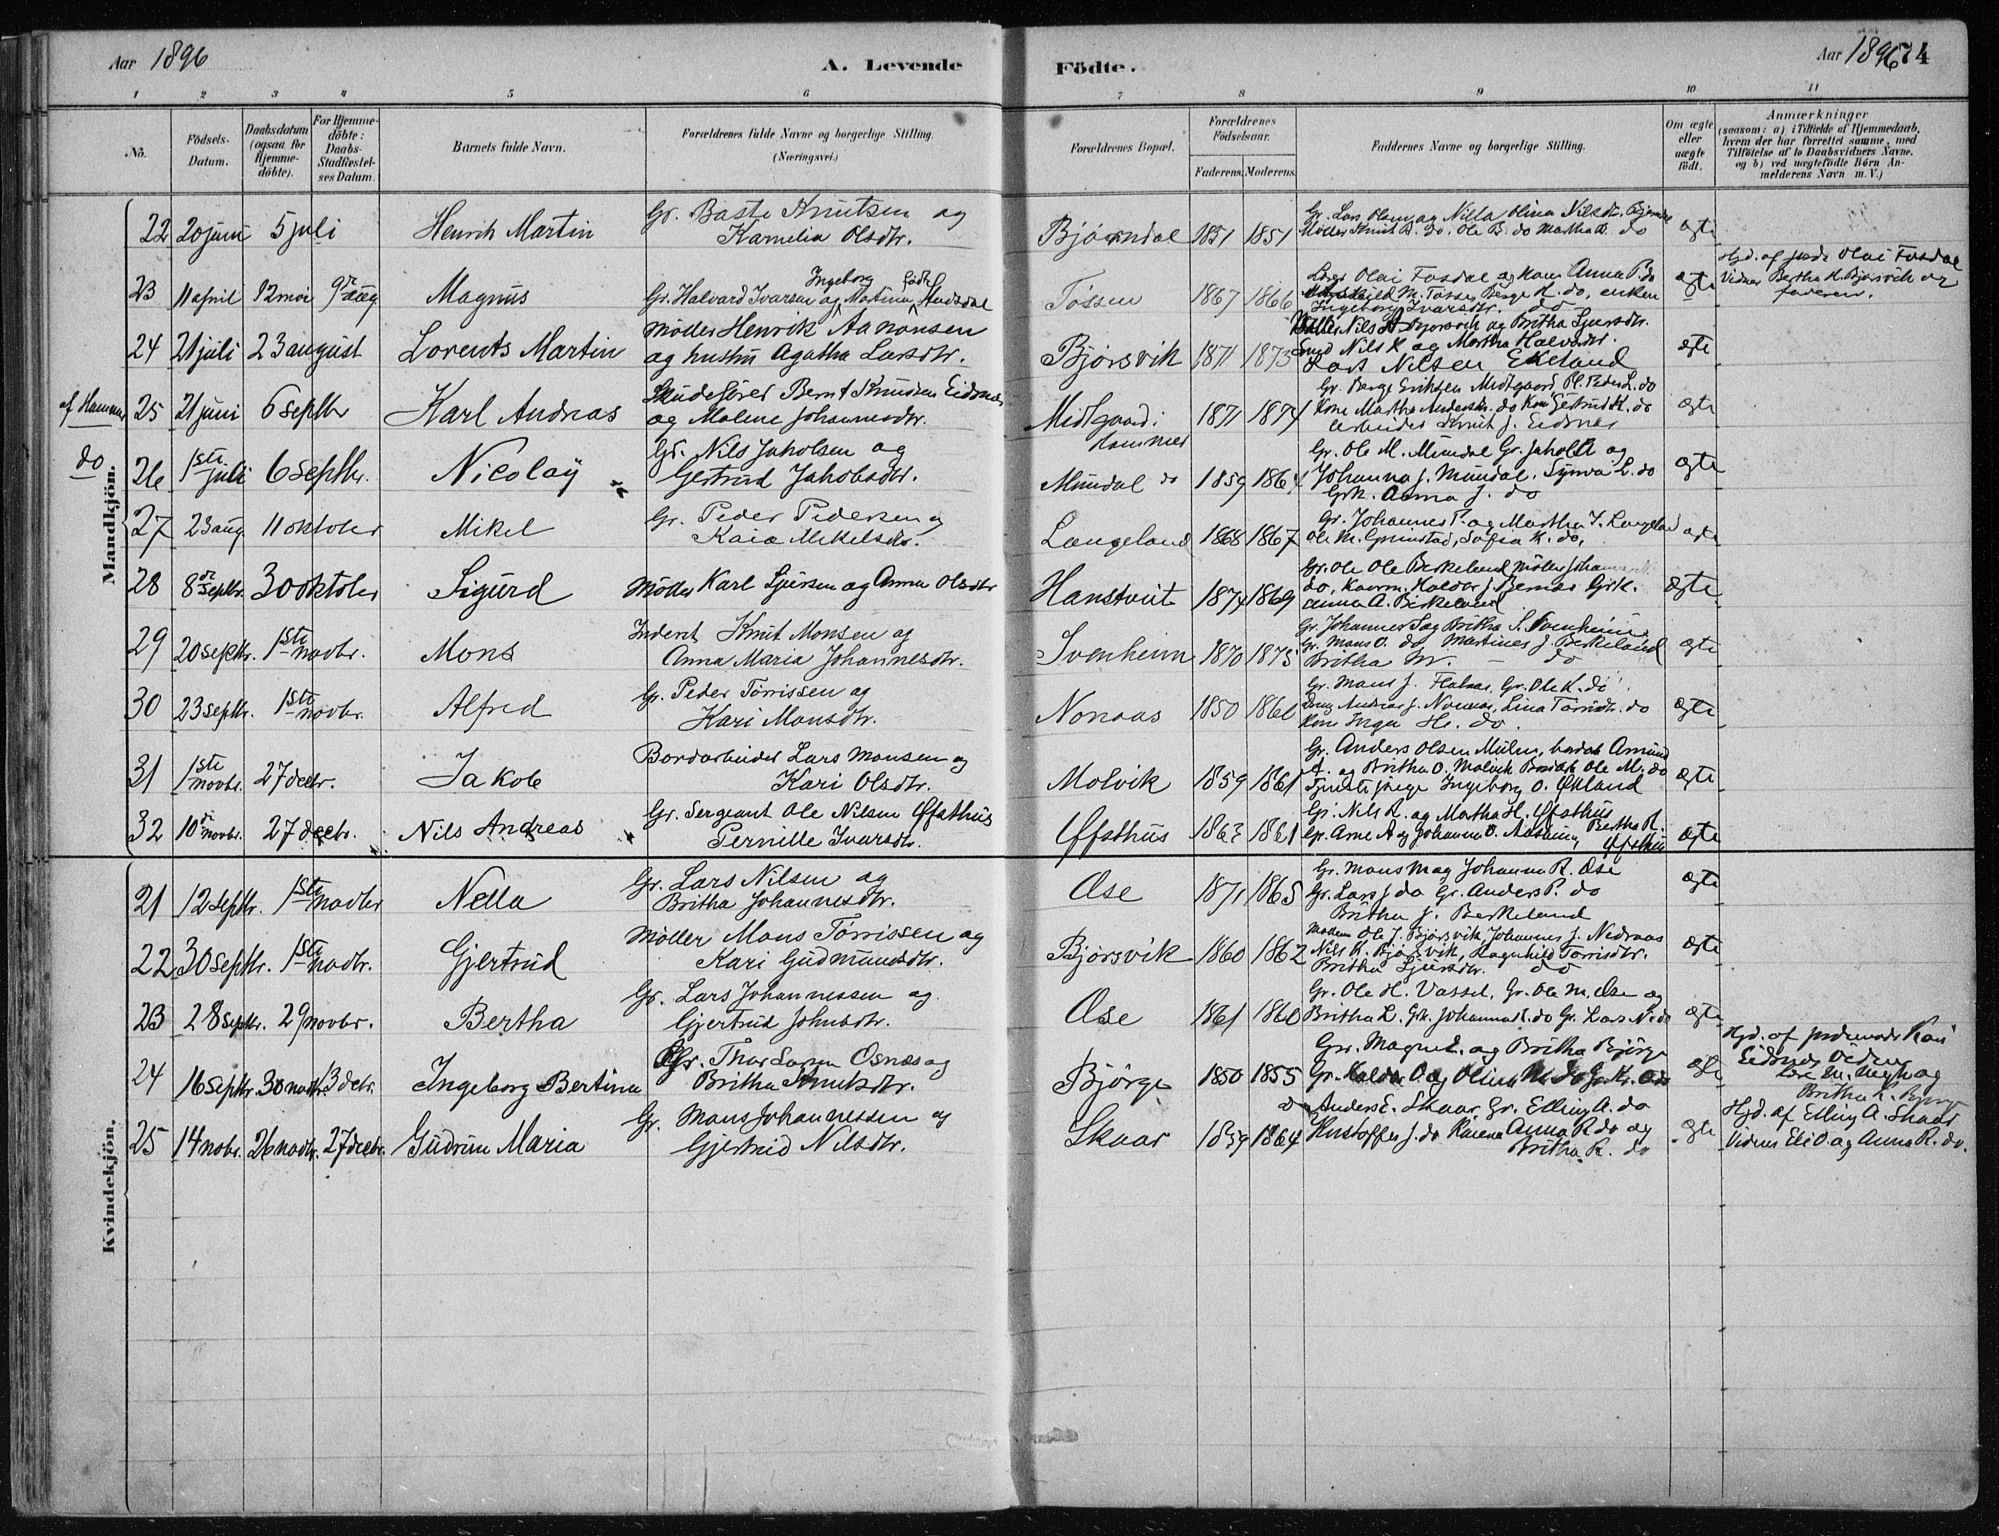 Aar 1896
A. Levende
Födte.
Aar 1896 74
1 2 3 4 5 6 7 8 9 10 11
No.
Födsels-Datum.
Daabsdatum (ogsaa for Hjemme-döbte).
For Hjemme-döbte: Daabs-Stadfæstel-ses Datum.
Barnets fulde Navn.
Forældrenes fulde Navne og borgerlige Stilling.
(Næringsvei.)
Forældrenes Bopæl.
Forældrenes Födselsaar.
Faderens. Moderens.
Faddernes Navne og borgerlige Stilling.
Om ægte eller uægte födt.
Anmærkninger
(saasom: a) i Tilfælde af Hjemmedaab, hvem der har forrettet samme, med Tilföielse af to Daabsvidners Navne, og b) ved uægtefödte Börn An-melderens Navn m. V.)
Mandkjön.
22 20 juni 5 juli Henrik Martin Gr. Baste Knutsen og
Kamelia Olsdtr. Bjørndal 1851 1851 Gr. Lars Olsen og Nilla Olina Nilsdtr.
Møller Knut B. do. Ole B. do Martha do ægte
23 11 april 12 mai 9de aug Magnus Gr. Halvard Ivarsen og Ingeborg Martina
Tossen 1867 1866 Olai Fosdal og kone Anna P. do
M. Tosse, Berge H. do, enken
Ingeborg Ivarsdtr. do ægte Hjd. af Olai Fosdal
Vidner Bertha K. Bjørsvik og
faderen.
24 21 juli 23 august Lorents Martin Møller Henrik Aanonsen
og hustru Agatha Larsdtr. Bjørsvik 1871 1873 Møller Nils A Bjørsvik og Britha Sjursdtr.
Nils K og Martha Halvorsdtr.
Lars Nilsen Ekeland ægte
af Hammer 25 21 juni 6 septbr Karl Andreas Skudefører Bernt Knudsen Eidsnes
og Malene Johannesdtr. Midtgaard: Hammer 1871 1874 Gr. Berge Eriksen Midtgaard, Pl. Peder L. do
Kone Martha Andersdtr. do Kone Gertrud K. do
arbeider Knut J. Eidsnes ægte
do 26 1ste juli 6 septbr. Nicolay Gr. Nils Jakobsen og
Gertrud Jakobsdtr. Mundal do 1859 1864 Gr. Ole M. Mundal Gr. Jakob A og
Johanna J. Mundal, Synva L. do
Grk. Anna J. do ægte
27 23 aug. 11 oktober Mikel Gr. Peder Pedersen og
Kaia Mikelsdtr. Langeland 1868 1867 Gr. Johannes P. og Martha J. Langeland
Ole M. Grimstad, Sofia K. do, ægte
28 8de septbr. 30 oktober Sigurd Møller Karl Sjursen og Anna Olsdtr Hanstveit 1874 1869 Gr. Ole Ole Birkeland Møller Johannes
do, Haldor J. Bernes Grk.
Anna A. Birkeland ægte
29 20 septbr. 1ste novbr. Mons Inderst Knut Monsen og
Anna Maria Johannesdtr. Svenheim 1870 1875 Gr. Johannes S og Britha S. Svenheim
Gr. Mons O. do Martines J. Birkeland
Britha M. — do ægte
30 23 septbr. 1ste novbr. Alfred Gr. Peder Tørrissen og
Kari Monsdtr. Nonaas 1850 1860 Gr. Mons J. Gr. Ole K. do
Andreas J. Nonaas, Lina Tørrisdtr. do
Kone Inger H. do. ægte
31 1ste novbr. 27 decbr. Jakob Bordarbeider Lars Monsen og
Kari Olsdtr. Molvik 1859 1861 Gr. Anders Olsen Mulen, bordarb Amund
A. og Britha O. Molvik Bordarb Ole M. do
Tjenestepige Ingeborg O. Økland ægte
32 10de novbr. 27 decbr. Nils Andreas Gr. Sergeant Ole Nilsen Øfsthus
Pernille Ivarsdtr. Øfsthus 1863 1861 Gr. Nils R. og Martha H. Øfsthus
Gr. Arne A og Johanna O. Aasheim, Bertha R.
Øfsthus ægte
Kvindekjön.
21 12 septbr. 1ste novbr Nella Gr. Lars Nilsen og
Britha Johannesdtr. Øse 1871 1865 Gr. Mons M og Johanna R. Øse
Gr. Lars J. do Gr. Anders P. do
Britha J. Birkeland ægte
22 30 septbr. 1ste novbr. Gjertrud Møller Mons Tørrissen og
Kari Gudmundsdtr. Bjørsvik 1860 1862 Møllern Ole J. Bjørsvik, Johannes J. Nedraas
Nils K. Bjørsvik, Ragnhild Tørrisdtr.
Britha Sjursdtr. do ægte
23 28 septbr. 29 novbr. Bertha Gr. Lars Johannessen og
Gjertrud Johnsdtr. Øse 1861 1860 Gr. Ole H. Vassel, Gr. Ole M. Øse og
Britha L. Grk. Johanna K. do Gr. Lars N. do ægte
24 16 septbr. 30 novbr. 13 decbr. Ingeborg Bertina Gr. Thor Larsen Osnæs og
Britha Knutsdtr. Bjørge 1850 1855 Gr. Magne L. og Britha Bjørge
Gr. Haldor O. og Olina do
do ægte Hjd. af jordemoder Kari
Eidsnes, Vidner
M. og
Britha K. Bjørge
25 14 nobr. 26 novbr. 27 decbr. Gudrun Maria Gr. Mons Johannessen og
Gjertrud Nilsdtr. Skaar 1859 1864 Anders E. Skaar, Gr. Elling A. do
Kristoffer J. do Karena Anna R. do og
Britha R. do ægte Hjd. af Elling A. Skaar
Vidner Eli O. og Anna R. do.